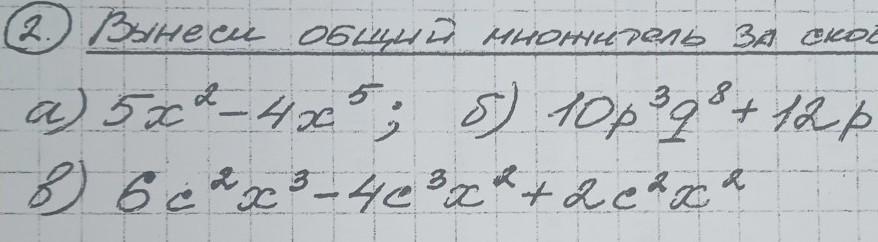 2. Вынеси общий множитель за
а) 5x² - 4x⁵; б) 10p³q⁸ + 12p
в) 6c²x³ - 4c³x² + 2c²x²